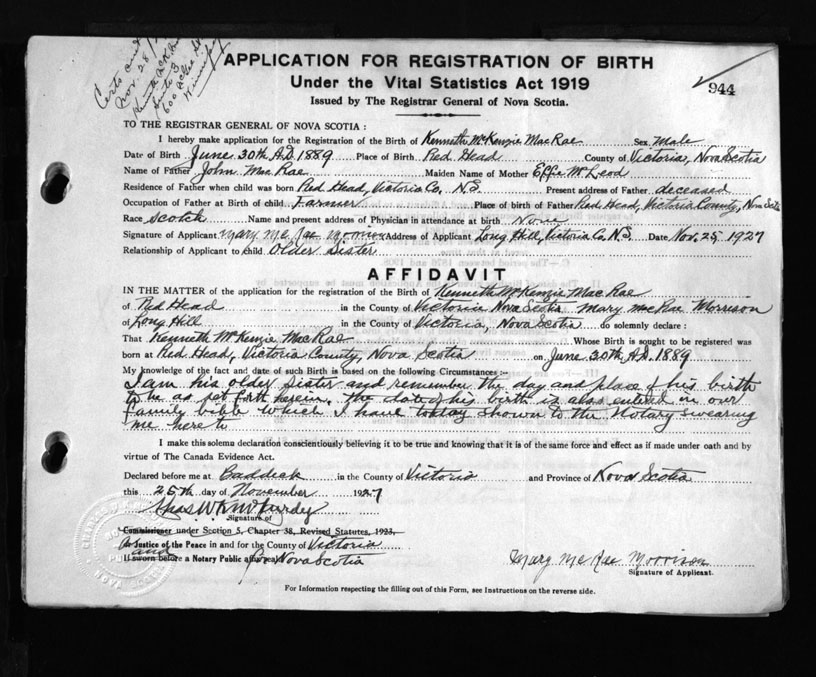 Certs and
Nov. 28/
Kenneth
Suite 3
600
Winnipeg
APPLICATION FOR REGISTRATION OF BIRTH
Under the Vital Statistics Act 1919
944
Issued by The Registrar General of Nova Scotia.
TO THE REGISTRAR GENERAL OF NOVA SCOTIA :
I hereby make application for the Registration of the Birth of Kenneth McKenzie MacRae Sex Male
Date of Birth June 30th A.D. 1889 Place of Birth Red Head County of Victoria, Nova Scotia
Name of Father John MacRae Maiden Name of Mother Effie McLeod
Residence of Father when child was born Red Head, Victoria Co. N.S. Present address of Father deceased
Occupation of Father at Birth of child Farmer Place of birth of Father Red Head, Victoria County, Nova Scotia
Race Scotch Name and present address of Physician in attendance at birth None
Signature of Applicant Mary McRae Morrison Address of Applicant Long Hill, Victoria Co. N.S. Date Nov. 25 1927
Relationship of Applicant to child Older Sister
AFFIDAVIT
IN THE MATTER of the application for the registration of the Birth of Kenneth McKenzie MacRae
of Red Head in the County of Victoria Nova Scotia Mary MacRae Morrison
of Long Hill in the County of Victoria, Nova Scotia do solemnly declare :
That Kenneth McKenzie MacRae Whose Birth is sought to be registered was
born at Red Head, Victoria County, Nova Scotia on June 30th A.D. 1889
My knowledge of the fact and date of such Birth is based on the following Circumstances :-
I am his older sister and remember the day and place of his birth
to be as set forth herein. The date of his birth is also entered in our
family bible which I have today shown to the Notary swearing
me hereto
I make this solemn declaration conscientiously believing it to be true and knowing that it is of the same force and effect as if made under oath and by
virtue of The Canada Evidence Act.
Declared before me at Baddeck in the County of Victoria and Province of Nova Scotia
this 25th day of November 1927
Signature of
Commissioner under Section 5, Chapter 38, Revised Statutes, 1923,
Justice of the Peace in and for the County of Victoria
and
If sworn before a Notary Public for Nova Scotia
Mary McRae Morrison
Signature of Applicant.
For Information respecting the filling out of this Form, see Instructions on the reverse side.